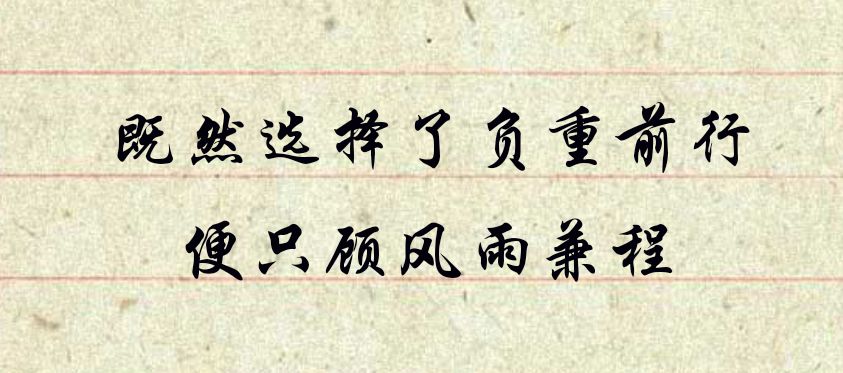 既然选择了负重前行
便只顾风雨兼程